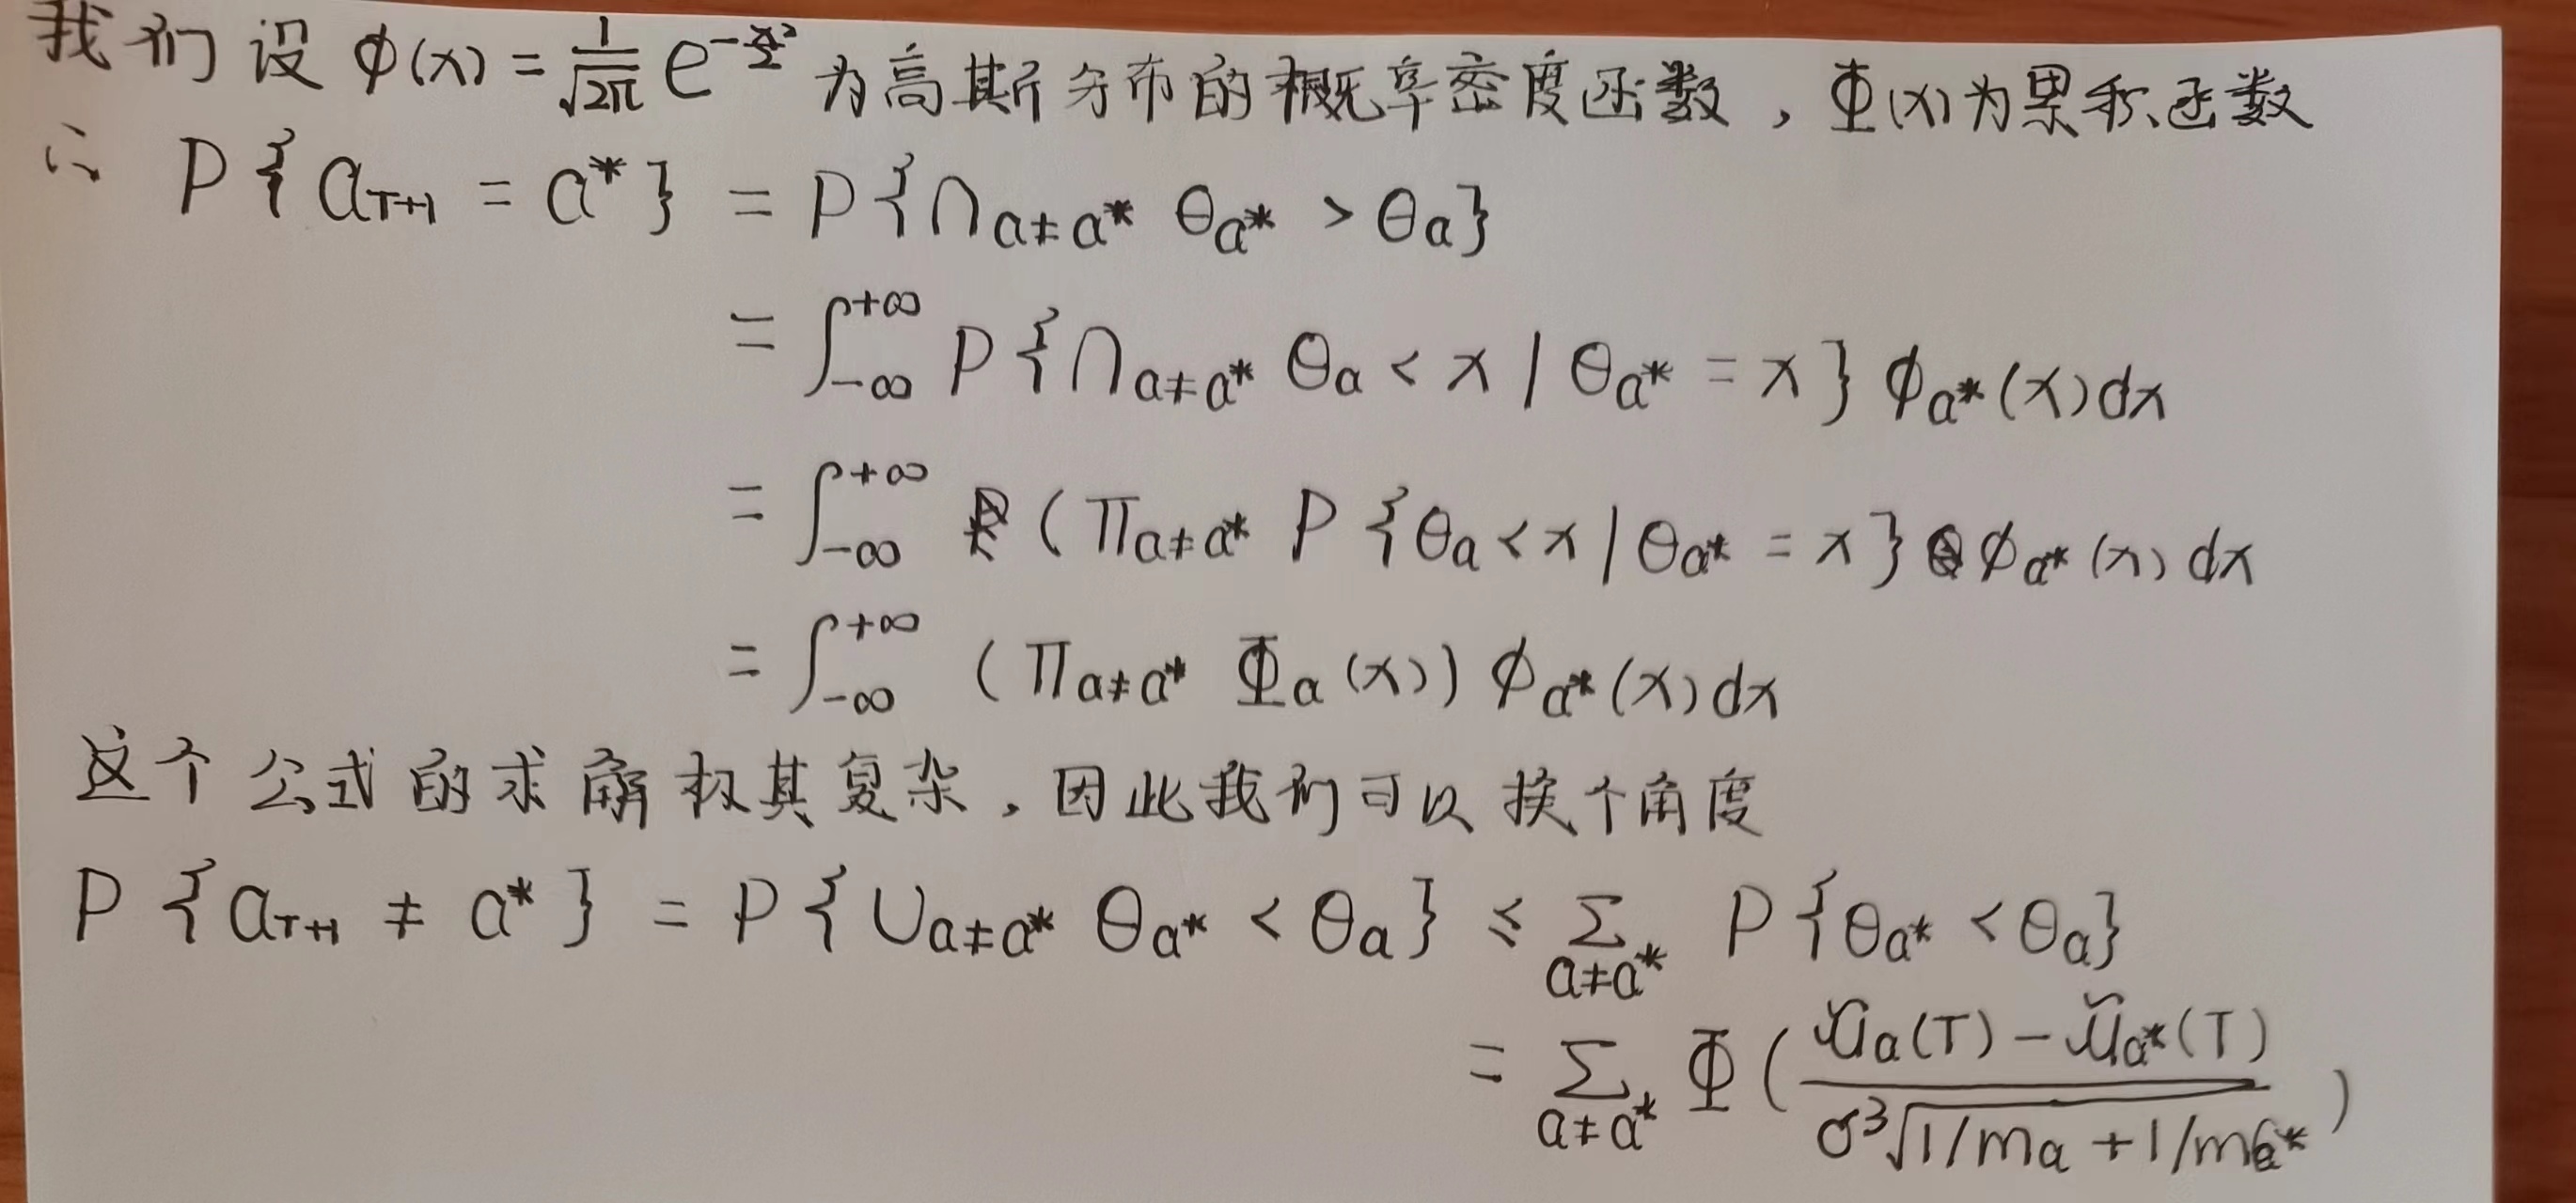 我们设 φ(x) = 1/√2π e^(-x²/2) 为高斯分布的概率密度函数，Φ(x)为累积函数
∴ P{a_{T+1} = a*} = P{∩_{a≠a*} θ_{a*} > θ_a}
= ∫_{-∞}^{+∞} P{∩_{a≠a*} θ_a < x | θ_{a*} = x} φ_{a*}(x)dx
= ∫_{-∞}^{+∞} (Π_{a≠a*} P{θ_a < x | θ_{a*} = x} φ_{a*}(x)dx
= ∫_{-∞}^{+∞} (Π_{a≠a*} Φ_a(x)) φ_{a*}(x)dx
这个公式的求解极其复杂，因此我们可以换个角度
P{a_{T+1} ≠ a*} = P{∪_{a≠a*} θ_{a*} < θ_a} ≤ Σ_{a≠a*} P{θ_{a*} < θ_a}
= Σ_{a≠a*} Φ((μ̃_a(T) - μ̃_{a*}(T)) / (σ³√(1/m_a + 1/m_{a*})))